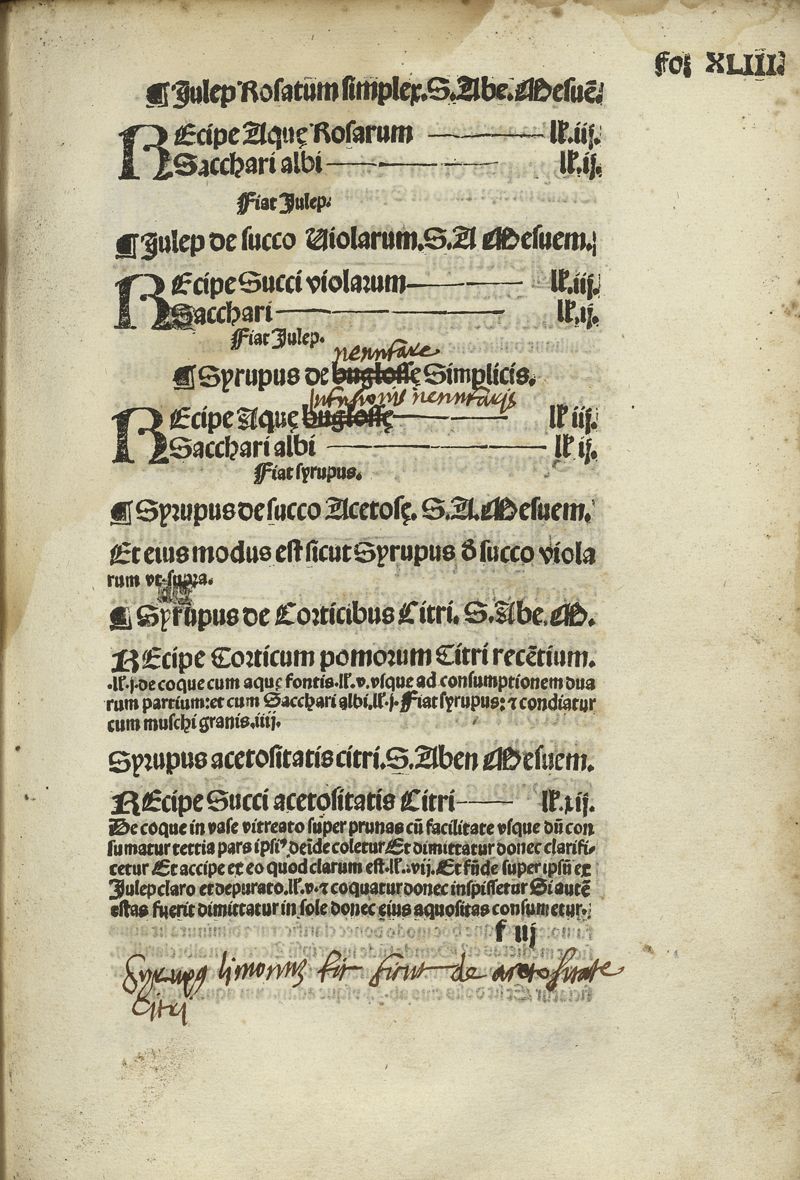 foj XLIIII.
¶Julep Rosatum simplex. S. Abe. Mesuē.
REcipe Aquę Rosarum ——— l℞.iij.
Sacchari albi ——— l℞.ij.
Fiat Julep.
¶Julep de succo Uiolarum. S. A Mesuem.
REcipe Succi violarum ——— l℞.iij.
Sacchari ——— l℞.ij.
Fiat Julep.
nenufare
¶Syrupus de buglossę Simplicis.
infusionis nenufaris
REcipe Aquę buglossę ——— l℞ iij.
Sacchari albi ——— l℞ ij.
Fiat syrupus.
¶Syrupus de succo Acetosę. S. A. Mesuem.
Et eius modus est sicut Syrupus ð succo viola
rum vt supra.
¶Syrupus de Corticibus Citri. S. Abe. M.
REcipe Corticum pomorum Citri recētium.
.l℞.j. de coque cum aquę fontis.l℞.v. vsque ad consumptionem dua
rum partium: et cum Sacchari albi.l℞.j. Fiat syrupus: ⁊ condiatur
cum muschi granis.iiij.
Syrupus acetositatis citri. S. Aben Mesuem.
REcipe Succi acetositatis Citri ——— l℞.xij.
De coque in vase vitreato super prunas cū facilitate vsque dū con
sumatur tertia pars ipsiꝰ deīde coletur Et dimittatur donec clarifi-
cetur Et accipe ex eo quod clarum est.l℞.vij. Et fūde super ipsū ex
Julep claro et depurato.l℞.v. ⁊ coquatur donec inspissetur Si autē
estas fuerit dimittatur in sole donec ejus aquositas consumetur.
f iij
Syrupꝰ limonuȝ fit sicut de acetositate
Citri